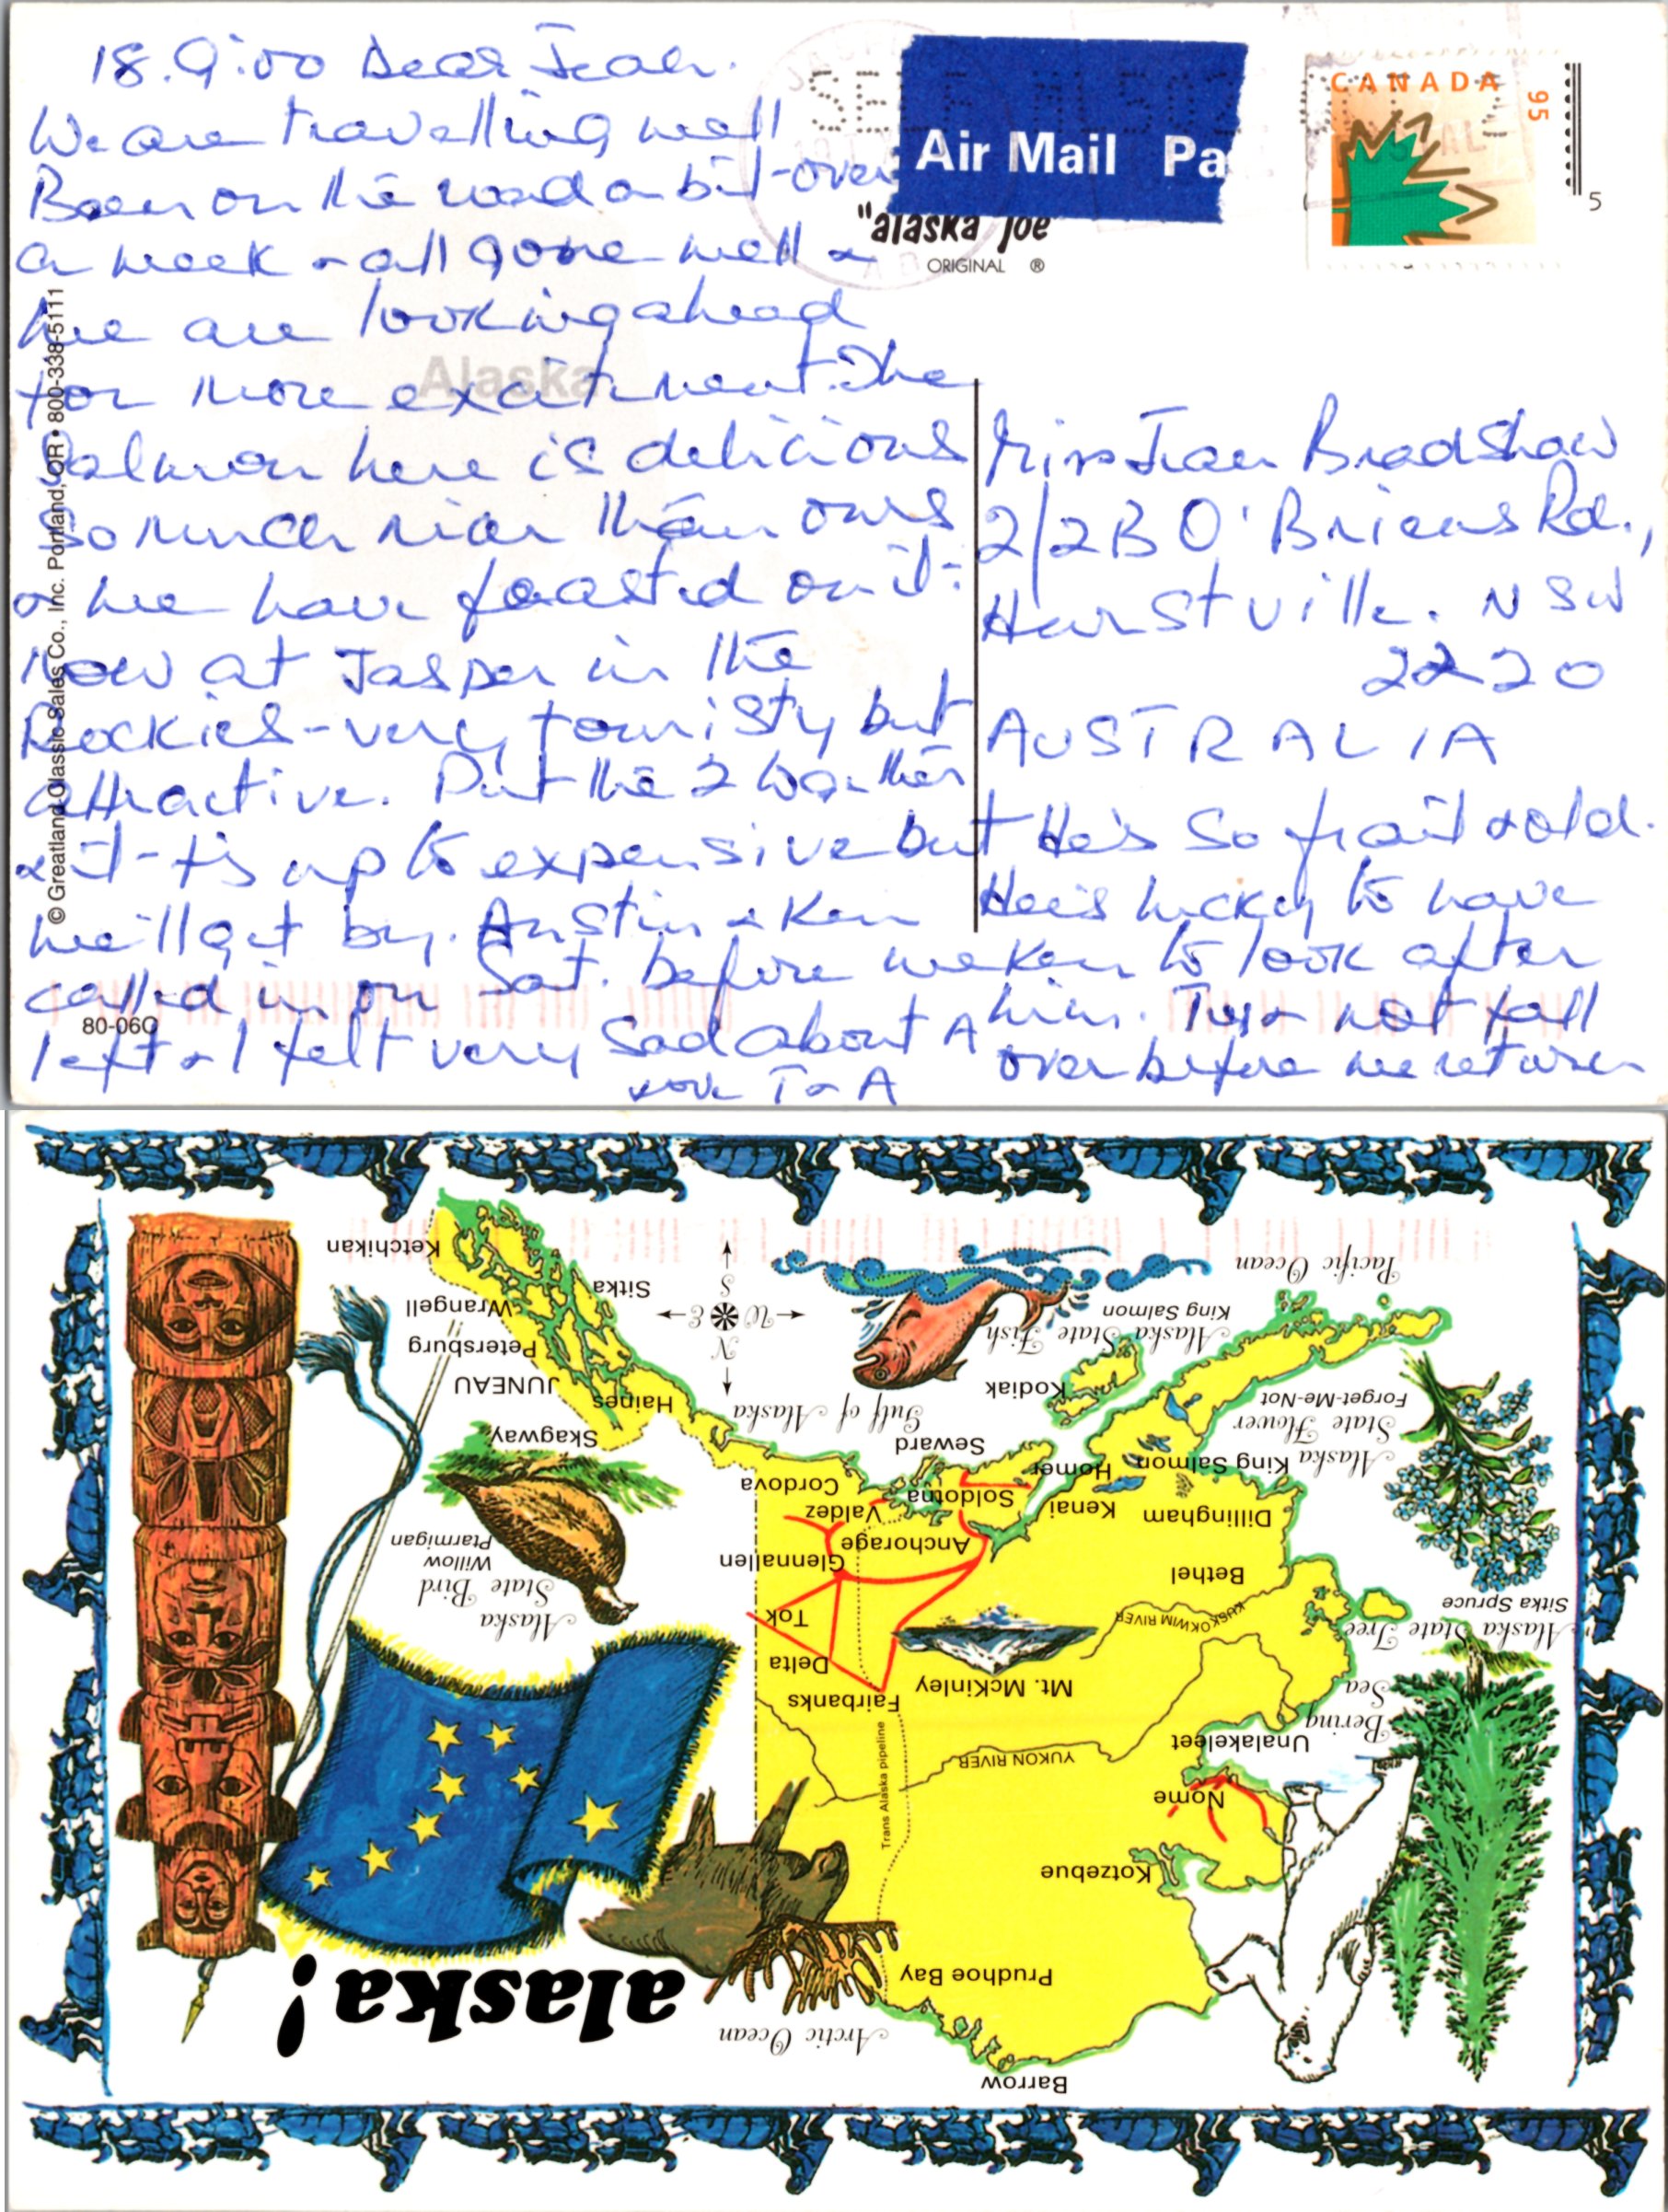 18.9.00 Dear Jean.
We are travelling well
Been on the road a bit over
a week & all gone well &
we are looking ahead
for more excitment. The
Salmon here is delicious
so much nicer than ours
& we have feasted on it.
Now at Jasper in the
Rockies - very touristy but
attractive. Put the 2 together
& it - t's up to expensive but
we'll get by. Austin & Ken
called in on Sat. before we
left & I felt very sad about A
He's so frail & old.
He's lucky to have
Ken to look after
him. Try & not fall
over before we return
love T & A
Air Mail Pa
"alaska joe"
ORIGINAL ®
CANADA
95
5
Alaska
Miss Jean Bradshaw
2/2B O'Briens Rd.,
Hurstville. NSW
2220
AUSTRALIA
© Greatland Classic Sales Co., Inc. Portland, OR • 800-338-5111
80-06C
alaska!
Arctic Ocean
Barrow
Prudhoe Bay
Kotzebue
Nome
Trans Alaska pipeline
YUKON RIVER
Unalakeleet
Bering
Sea
Fairbanks
Mt. McKinley
Delta
Tok
KUSKOKWIM RIVER
Alaska State Tree
Sitka Spruce
Alaska
State Bird
Willow
Ptarmigan
Glennallen
Anchorage
Bethel
Valdez
Soldotna
Kenai
Dillingham
Cordova
Homer
King Salmon
Seward
Alaska
State Flower
Forget-Me-Not
Skagway
Haines
Gulf of Alaska
Kodiak
JUNEAU
Petersburg
Wrangell
Sitka
Ketchikan
N
W E
S
Alaska State Fish
King Salmon
Pacific Ocean